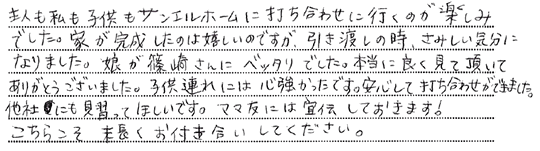 主人も私も子供もサンエルホームに打ち合わせに行くのが楽しみ
でした。家が完成したのは嬉しいのですが、引き渡しの時、さみしい気分に
なりました。娘が篠崎さんにベッタリでした。本当に良く見て頂いて
ありがとうございました。子供連れには心強かったです。安心して打ち合わせができました。
他社にも見習ってほしいです。ママ友には宣伝しておきます!
こちらこそ末長くお付き合いしてください。